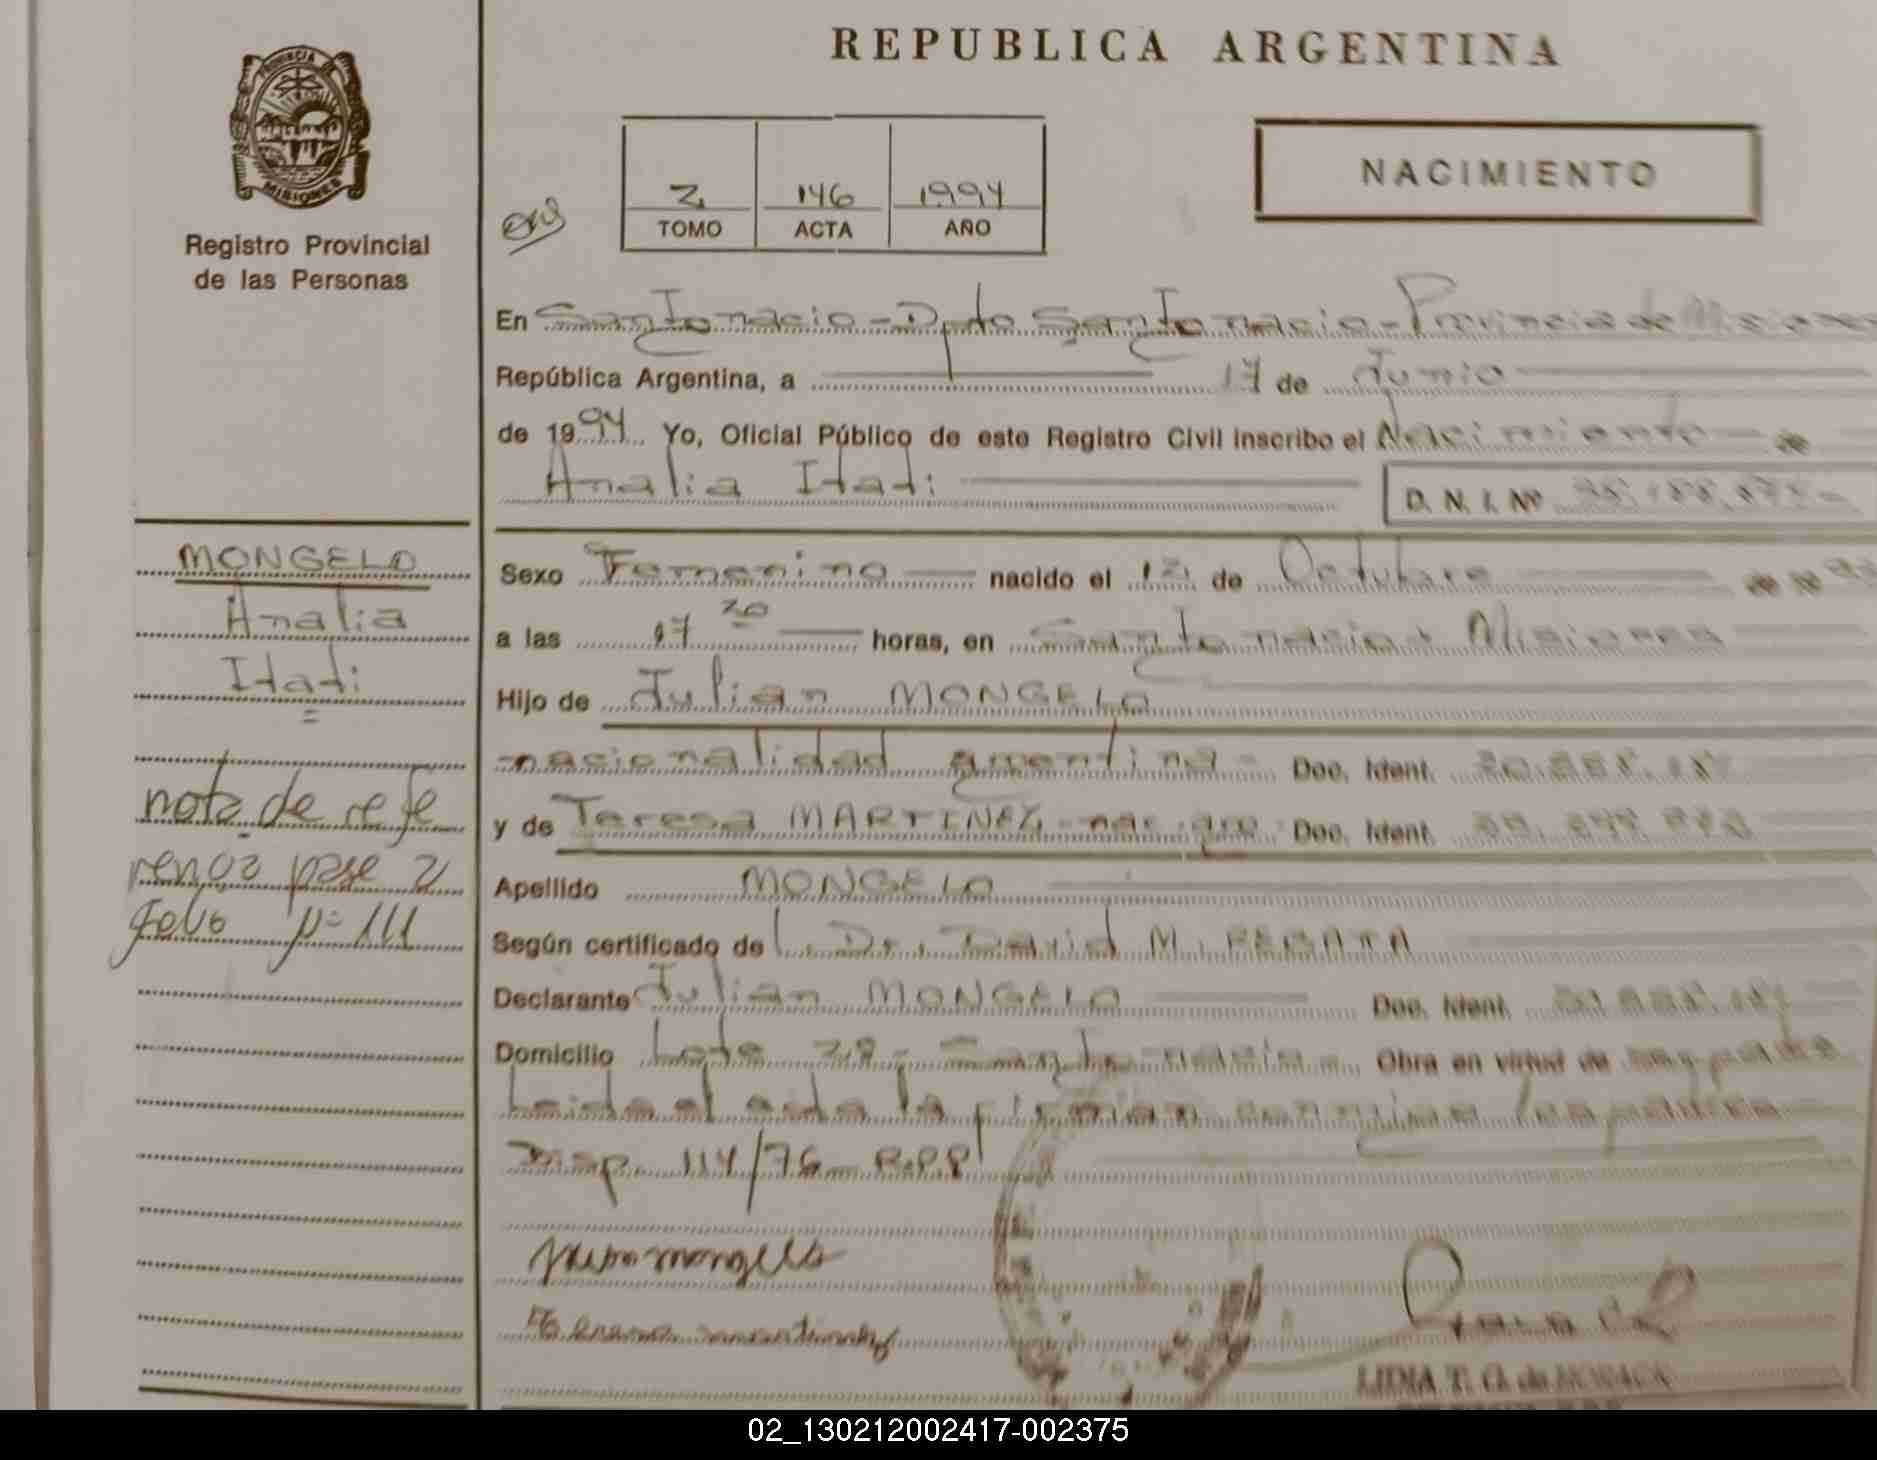 REPUBLICA ARGENTINA
PROVINCIA DE
MISIONES
Registro Provincial
de las Personas
2 146 1994
TOMO ACTA AÑO
NACIMIENTO
En San Ignacio - Dpto San Ignacio - Provincia de Misiones
República Argentina, a 17 de Junio
de 1994 Yo, Oficial Público de este Registro Civil inscribo el Nacimiento de
Analia Itati
D. N. I. Nº
MONGELO
Analia
Itati
Sexo Femenino nacido el 12 de Octubre
a las 17 20 horas, en San Ignacio Misiones
Hijo de Julian MONGELO
nacionalidad argentina - Doc. Ident.
y de Teresa MARTINEZ Doc. Ident.
nota de refe
rencia pase a
folio nº 111
Apellido MONGELO
Según certificado de Dr. David M.
Declarante Julian MONGELO Doc. Ident.
Domicilio Lote San Ignacio Obra en virtud de
Leida el acta la firman conmigo los padres
Disp. 114/76 R.P.P.
LIDIA T. G. de
02_130212002417-002375